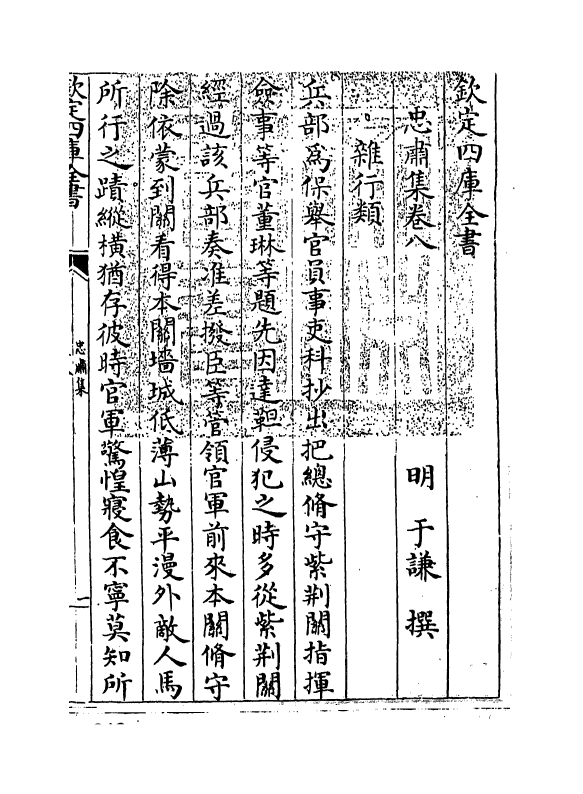 欽定四庫全書
忠肅集卷八
明 于謙 撰
雜行類
兵部爲保舉官員事吏科抄出把總脩守紫荆關指揮
僉事等官董琳等題先因達靼侵犯之時多從紫荆關
經過該兵部奏准差撥臣等管領官軍前來本關脩守
除依蒙到關看得本關墻城低薄山勢平漫外敵人馬
所行之蹟縱横猶存彼時官軍驚惶寢食不寧莫知所
欽定四庫全書
忠肅集